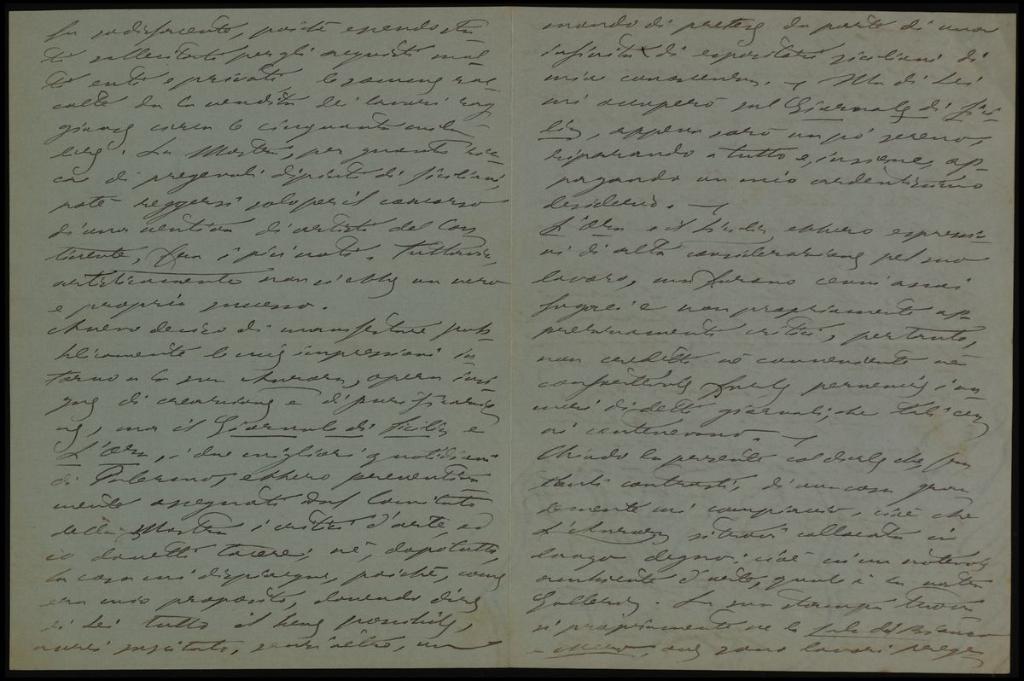 fu sodisfacente, poiché essendo sta
te sollecitate per gli acquisti mol
te enti e privati, le somme rac
colte da la vendita dei lavori rag
giunse circa le cinquanta mila
lire. La Mostra, per quanto ric
ca di pregevoli dipinti di siciliani,
poté reggersi solo per il concorso
di una ventina di artisti del Con
tinente, fra i più noti. Tuttavia,
artisticamente non si ebbe un vero
e proprio successo.
Avevo deciso di manifestare pub
blicamente le mie impressioni in
torno a la sua Aurora, opera insi
gne di creazione e di purificazio
ne, ma il Giornale di Sicilia e
L'Ora, i due migliori quotidiani
di Palermo, ebbero preventiva
mente assegnati dal Comitato
della Mostra i critici d'arte, ed
io dovetti tacere; né, dopotutto,
la cosa mi dispiacque, poiché, come
era mio proposito, dovendo dire
di Lei tutto il bene possibile,
avrei suscitato, senz'altro, un
mondo di pretese da parte di una
infinità di espositori siciliani di
mia conoscenza. — Ma di Lei
mi occuperò sul Giornale di Sici
lia, appena sarò un pò sereno,
riparando a tutto e, insieme, ap
pagando un mio ardentissimo
desiderio. —
L'Ora e il Sicilia ebbero espressio
ni di alta considerazione pel suo
lavoro, ma furono cenni assai
fugaci e non propriamente ap
prezzamenti critici, pertanto,
non credetti né conveniente né
confortante farle pervenire i nu
meri di detti giornali, che tali cen
ni contenevano. —
Chiudo la presente col dirle che fra
tanti contrasti, di una cosa gran
demente mi compiaccio, cioè che
L'Aurora si trovi collocata in
luogo degno: cioè in un notevole
ambiente d'arte, quale è la nostra
Galleria. La sua stampa trova
si propriamente ne la Sala del Bianco
e Nero, ove sono lavori prege